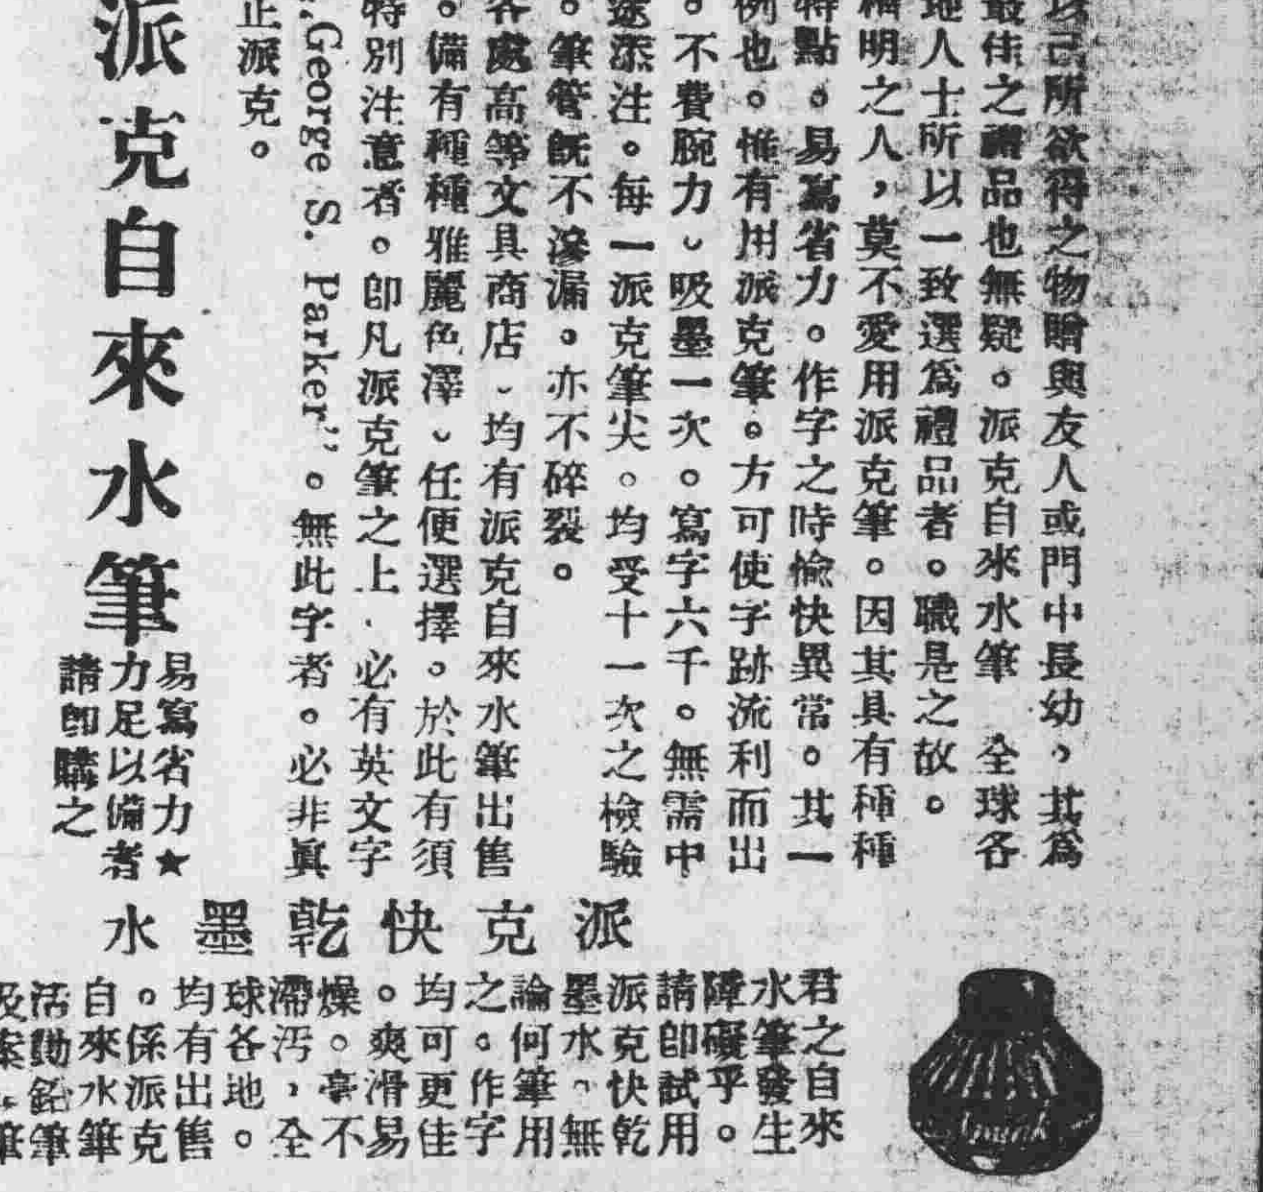 以己所欲得之物贈與友人或門中長幼，其爲
最佳之禮品也無疑。派克自來水筆 全球各
地人士所以一致選爲禮品者。職是之故。
精明之人，莫不愛用派克筆。因其具有種種
特點。易寫省力。作字之時愉快異常。其一
例也。惟有用派克筆。方可使字跡流利而出
。不費腕力、吸墨一次。寫字六千。無需中
途添注。每一派克筆尖。均受十一次之檢驗
。筆管旣不滲漏。亦不碎裂。
各處高等文具商店、均有派克自來水筆出售
。備有種種雅麗色澤、任便選擇。於此有須
特別注意者。卽凡派克筆之上．必有英文字
George S. Parker”。無此字者。必非眞
正派克。
派克自來水筆
易寫省力★
力足以備者
請卽購之
派克快乾墨水
君之自來
水筆發生
障礙乎。
請卽試用
派克快乾
墨水。無
論何筆用
之。作字
均可更佳
。爽滑易
燥。毫不
滯汚，全
球各地。
均有出售
。係派克
自來水筆
活動鉛筆
及案 筆